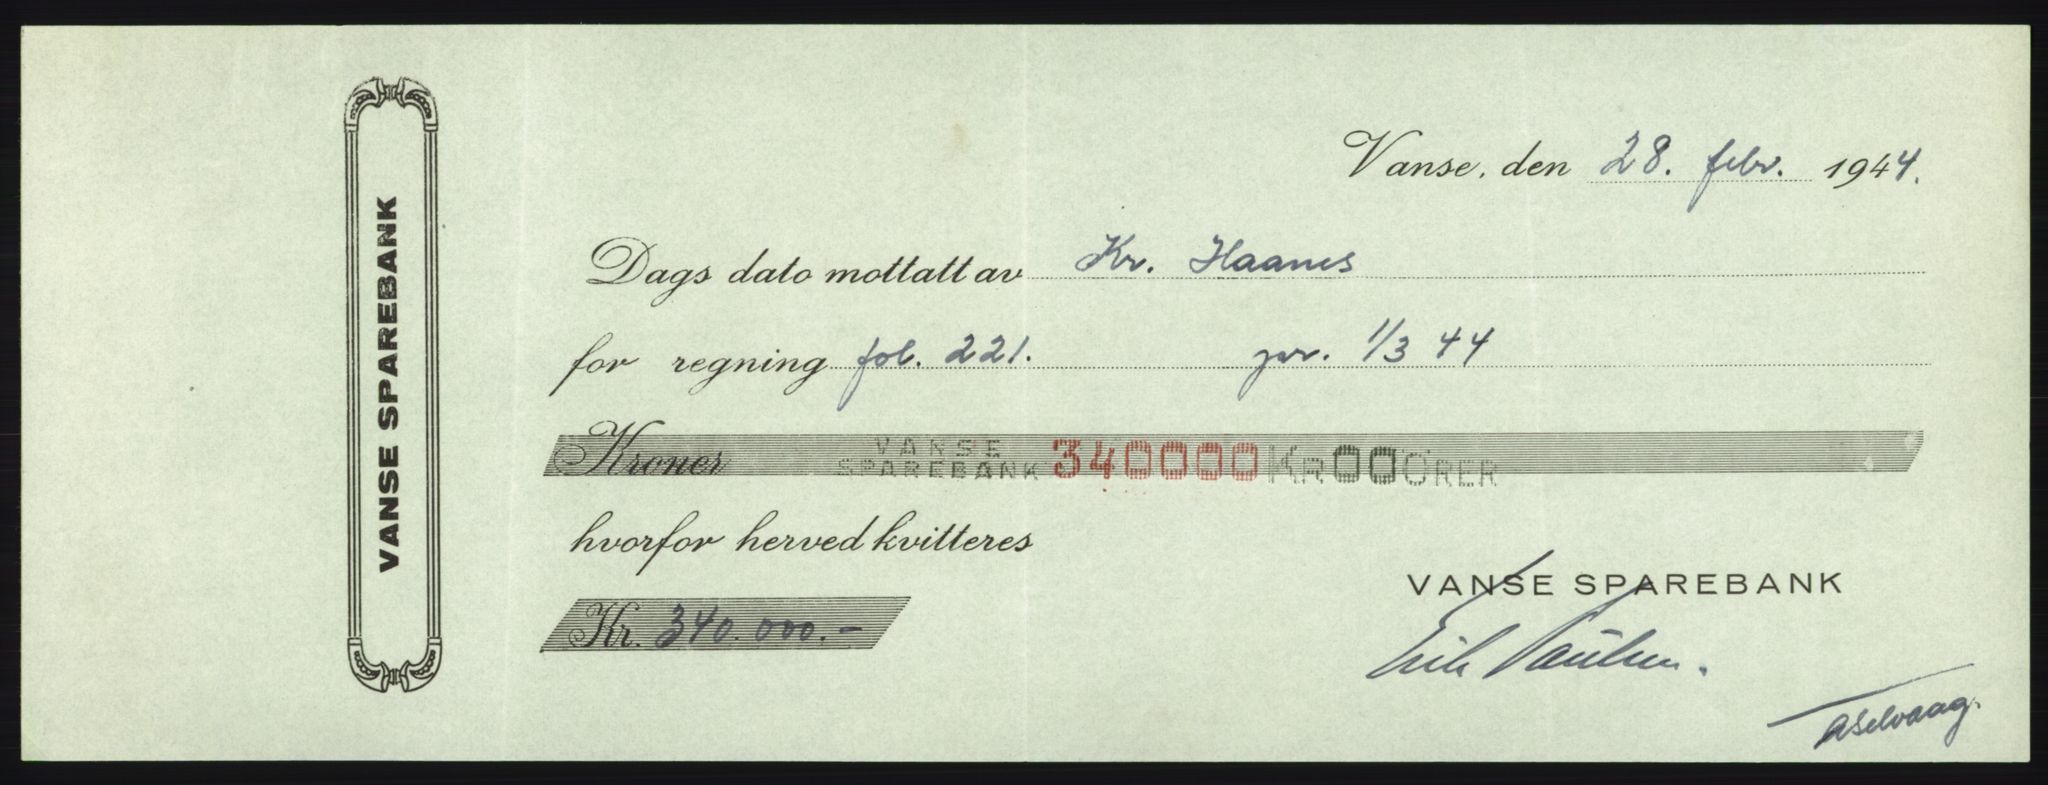 VANSE SPAREBANK
Vanse, den 28. febr. 1944.
Dags dato mottatt av Kr. Haanes
for regning fol. 221. pr. 1/3 44
Kroner VANSE SPAREBANK 340000 KR 00 ÖRER
hvorfor herved kvitteres
VANSE SPAREBANK
Kr. 340.000.-
Erik Paulsen.